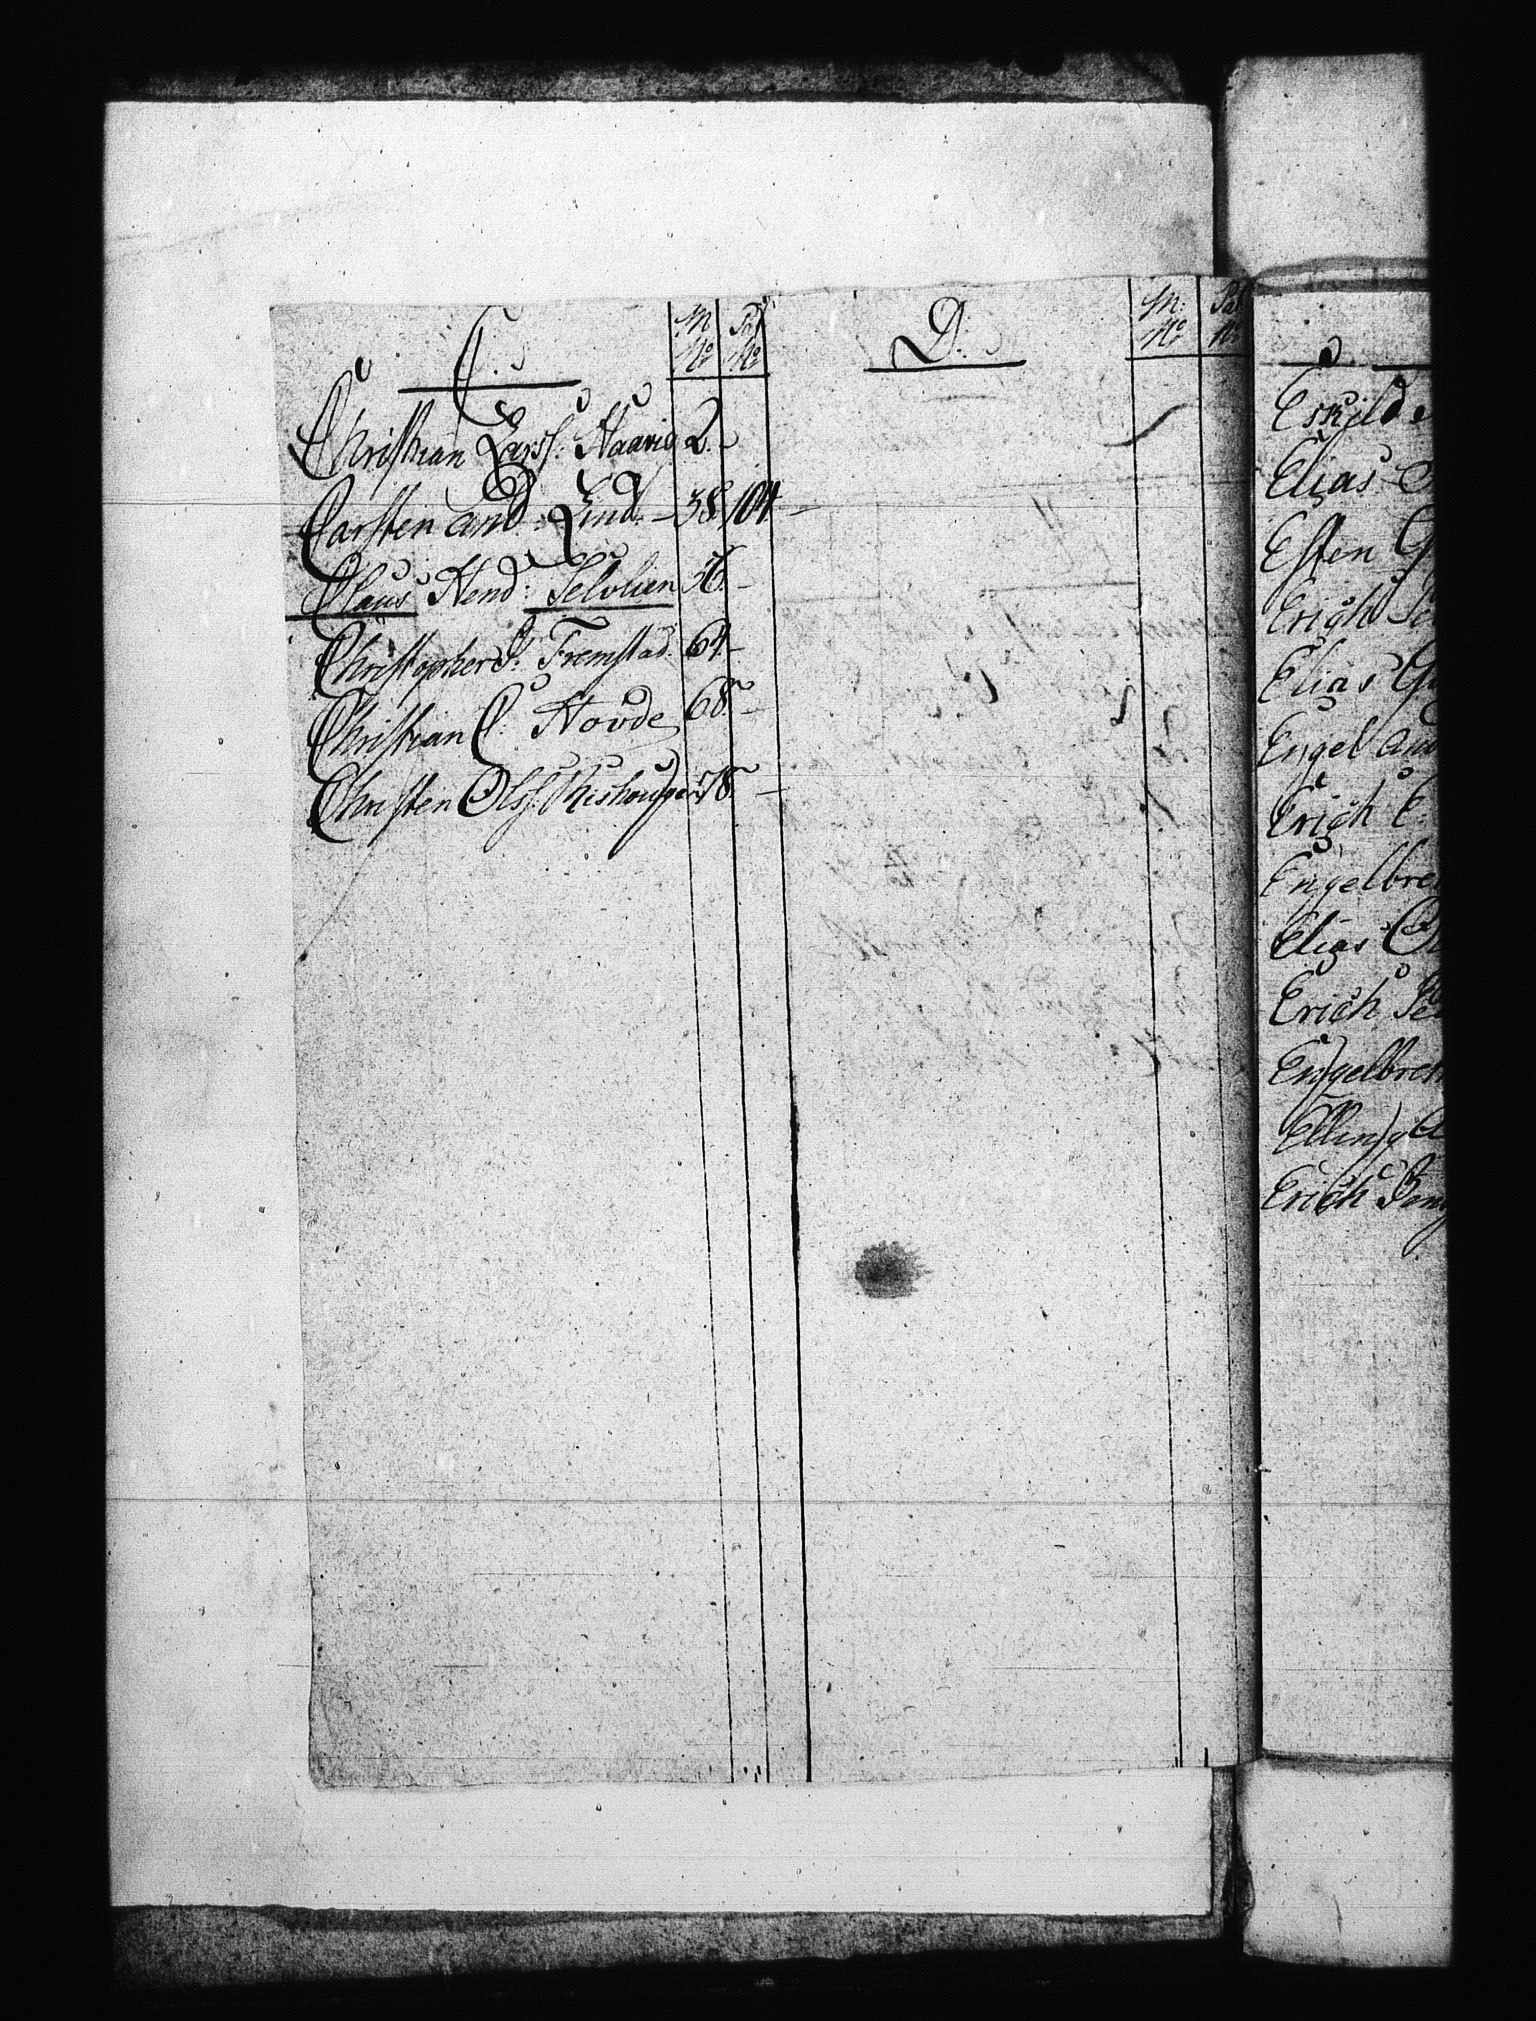 C.
M Pat
No No
Christian Larss: Naavig 2.
Carsten And: Lind. 38. 104.
Claus Hend: Selvlien 56.
Christopher P. Fremstad 64
Christian C: Hovde 68.
Christen Olss: 78.
D.
M: Pat
No No
Eskild
Elias
Esten
Erich
Elias
Engel And
Erich E.
Engelbre
Elias
Erich Pe
Engelbreh
Elling
Erich Beng